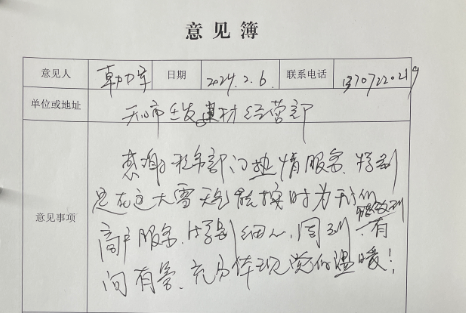 意见簿
意见人 韩力军 日期 2024.2.6. 联系电话
单位或地址 建材经营部
意见事项
感谢税务部门热情服务.特别
是在这大雪天能按时为我们
商户服务.特别细心.周到.有
问有答.充分体现党的温暖!